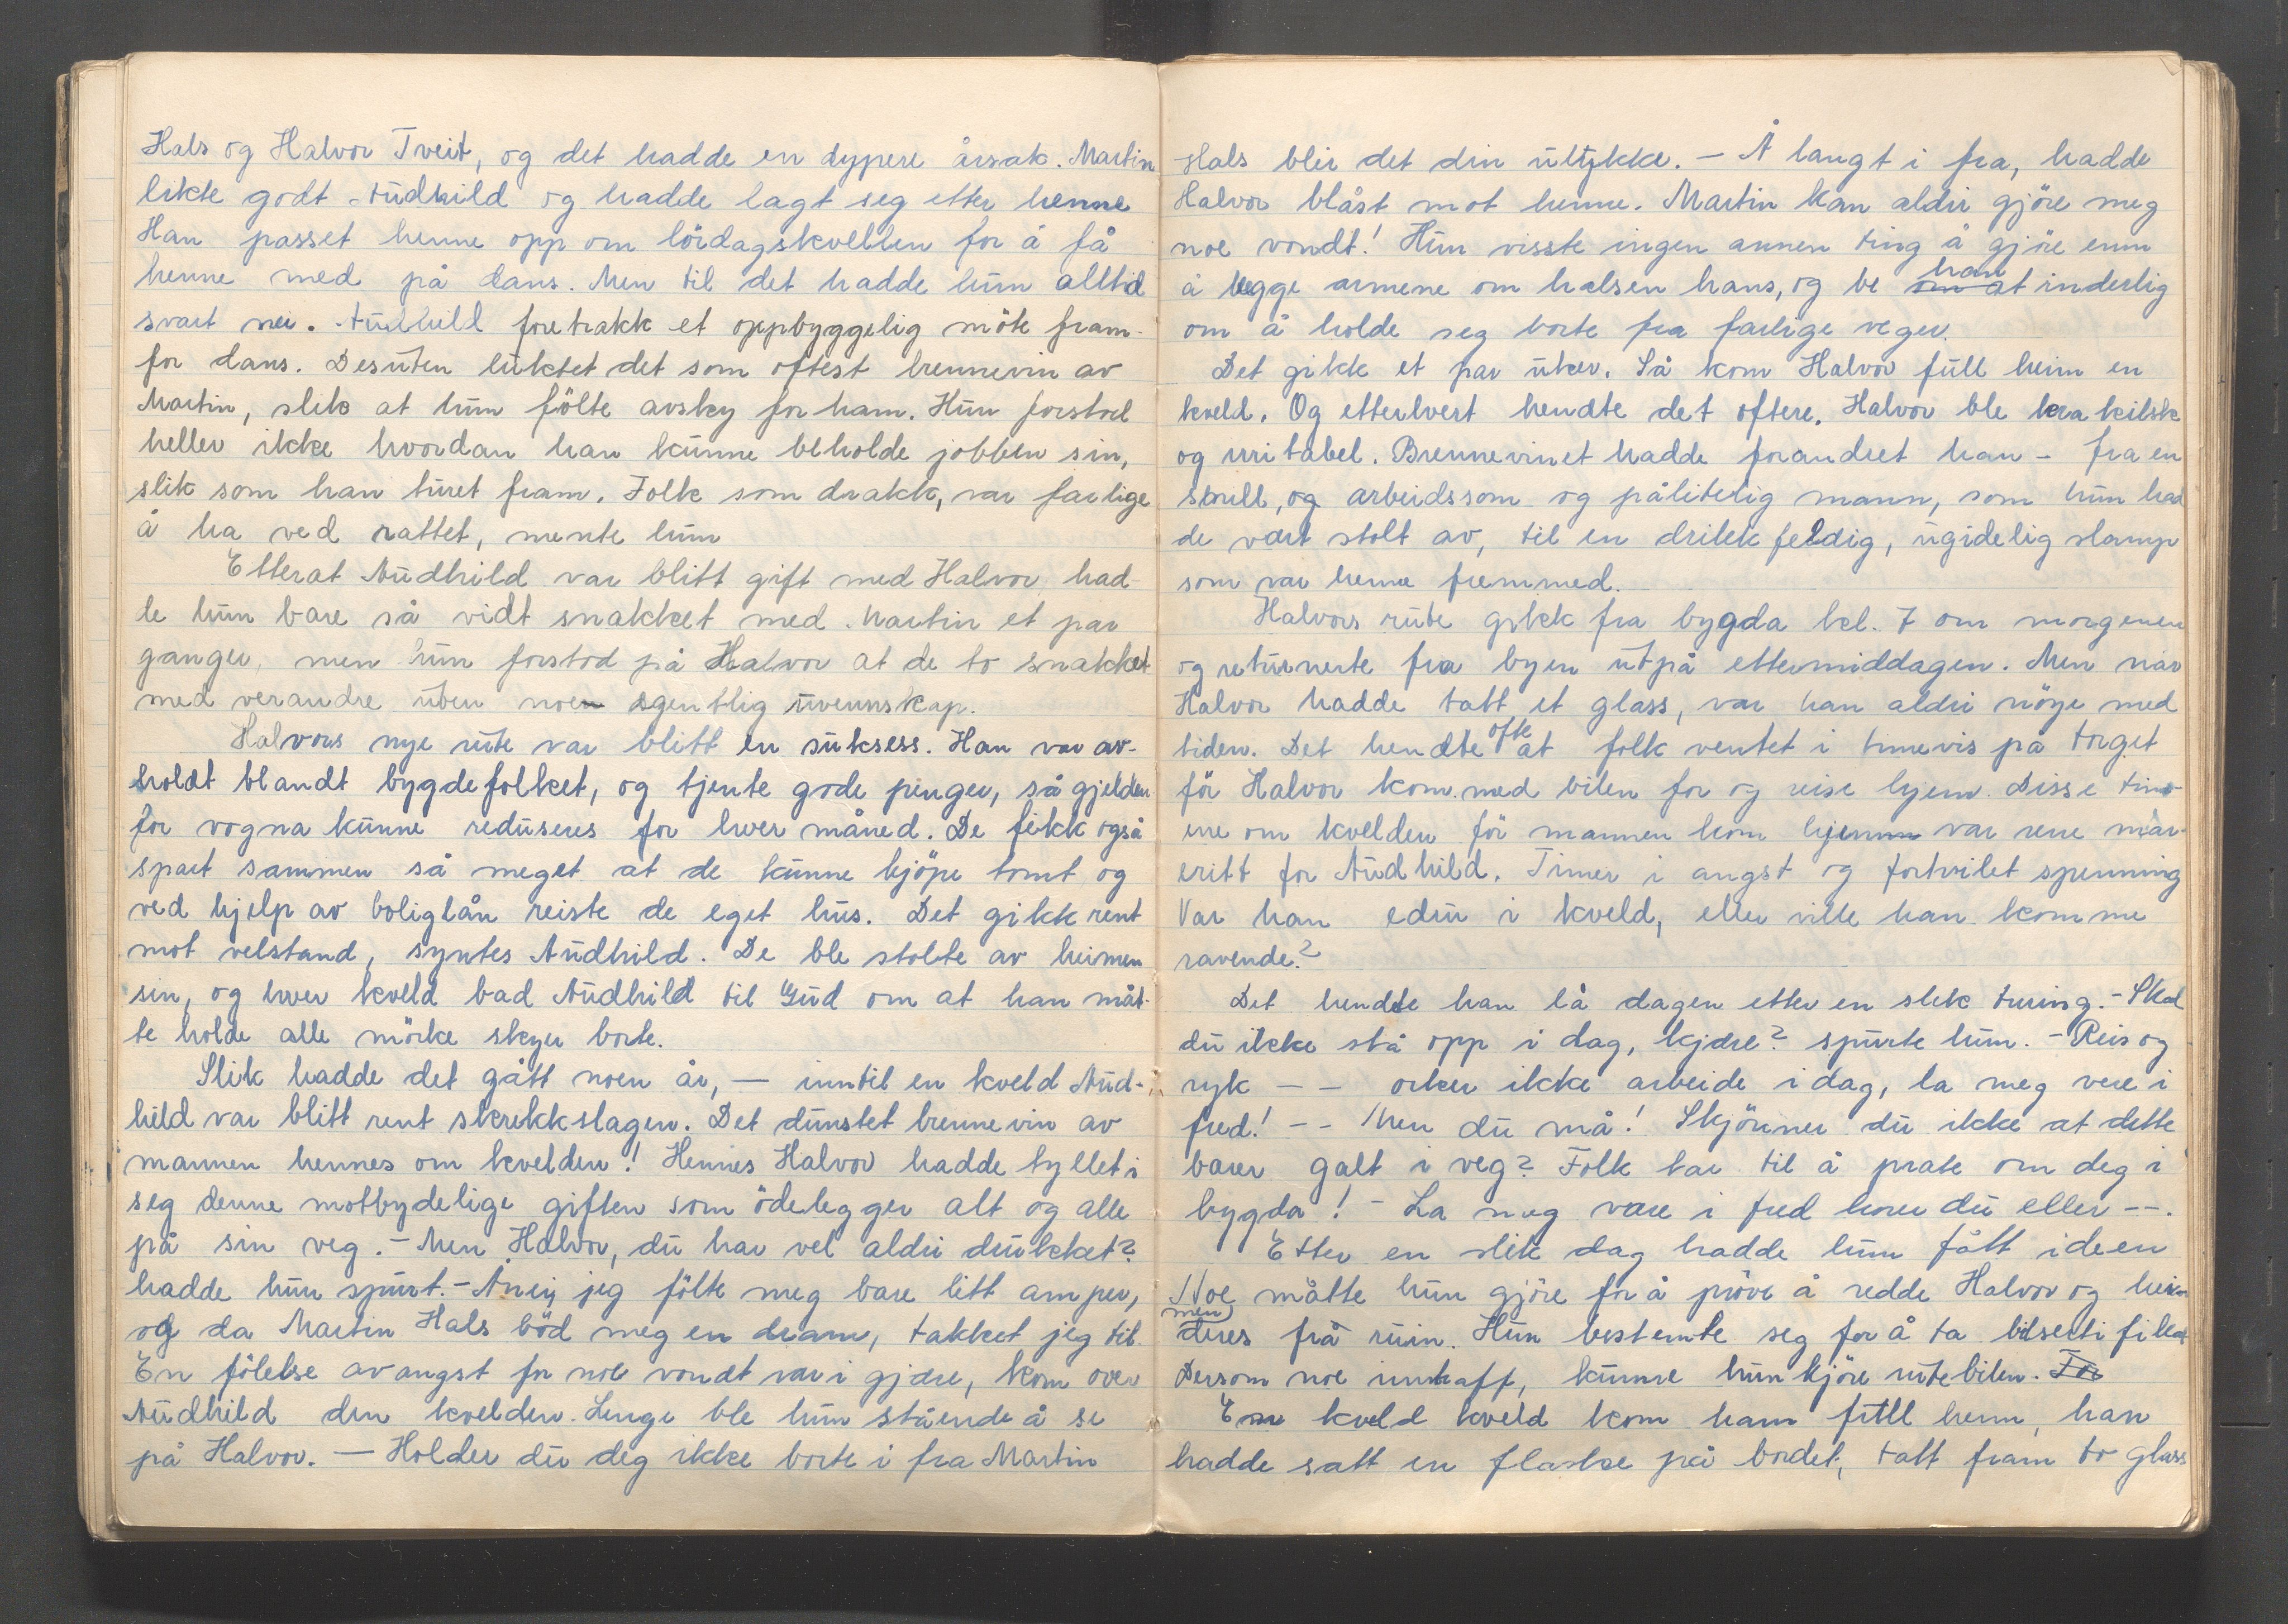 Hals og Halvor Tveit, og det hadde en dypere årsak. Martin
likte godt Audhild og hadde lagt seg etter henne
Han passet henne opp om lördagskvelden for å få
henne med på dans. Men til det hadde hun alltid
svart nei. Audhild foretrakk et oppbyggelig möte fram-
for dans. Desuten luktet det som oftest brennevin av
Martin, slik at hun fölte avsky for ham. Hun forstod
heller ikke hvordan han kunne beholde jobben sin,
slik som han turet fram. Folk som drakk, var farlige
å ha ved rattet, mente hun
Etterat Audhild var blitt gift med Halvor, had-
de hun bare så vidt snakket med Martin et par
ganger, men hun forstod på Halvor at de to snakket
med verandre uten noen egentlig uvennskap.
Halvors nye rute var blitt en suksess. Han var av-
holdt blandt bygdefolket, og tjente gode penger, så gjelden
for vogna kunne reduseres for hver måned. De fikk også
spart sammen så meget at de kunne kjöpe tomt og
ved hjelp av boliglån reiste de eget hus. Det gikk rent
mot velstand, syntes Audhild. De ble stolte av heimen
sin, og hver kveld bad Audhild til Gud om at han måt-
te holde alle mörke skyer borte.
Slik hadde det gått noen år, — inntil en kveld Aud-
hild var blitt rent skrekkslagen. Det dunstet brennevin av
mannen hennes om kvelden! Hennes Halvor hadde tyllet i
seg denne motbydelige giften som ödelegger alt og alle
på sin veg. – Men Halvor, du har vel aldri drukket?
hadde hun spurt. – Ånei, jeg fölte meg bare litt amper,
og da Martin Hals böd meg en dram, takket jeg til.
En fölelse av angst for noe vondt var i gjære, kom over
Audhild den kvelden. Lenge ble hun stående å se
på Halvor. — Holder du deg ikke borte i fra Martin
Hals blir det din ulykke. – Å langt i fra, hadde
Halvor blåst mot henne. Martin kan aldri gjöre meg
noe vondt! Hun visste ingen annen ting å gjöre enn
å legge armene om halsen hans, og be om at han inderlig
om å holde seg borte fra farlige veger.
Det gikk et par uker. Så kom Halvor full heim en
kveld. Og etterhvert hendte det oftere. Halvor ble krakilsk
og irritabel. Brennevinet hadde forandret han – fra en
snill, og arbeidssom og pålitelig mann, som hun had
de vært stolt av, til en drikkfeldig, ugidelig slamp
som var henne fremmed.
Halvors rute gikk fra bygda kl. 7 om morgenen
og returnerte fra byen utpå ettermiddagen. Men når
Halvor hadde tatt et glass, var han aldri nöye med
tiden. Det hendte ofte at folk ventet i timevis på torget
för Halvor kom med bilen for og reise hjem. Disse time-
ne om kvelden för mannen kom hjem var rene mar-
eritt for Audhild. Timer i angst og fortvilet spenning
Var han edru i kveld, eller ville han komme
ravende?
Det hendte han lå dagen etter en slik turing. – Skal
du ikke stå opp i dag, kjære? spurte hun. – Reis og
ryk – – orker ikke arbeide i dag, la meg vere i
fred! – – Men du må! Skjönner du ikke at dette
barer galt i veg? Folk tar til å prate om deg i
bygda! – La meg være i fred hører du eller – –.
Etter en slik dag hadde hun fått ideen
Noe måtte hun gjöre for å pröve å redde Halvor og hei-
men deres frå ruin. Hun bestemte seg for å ta bilsertifikat
Dersom noe inntraff, kunne hun kjöre rutebilen. For
En kveld kveld kom ham full hem, han
hadde satt en flaske på bordet, tatt fram to glass